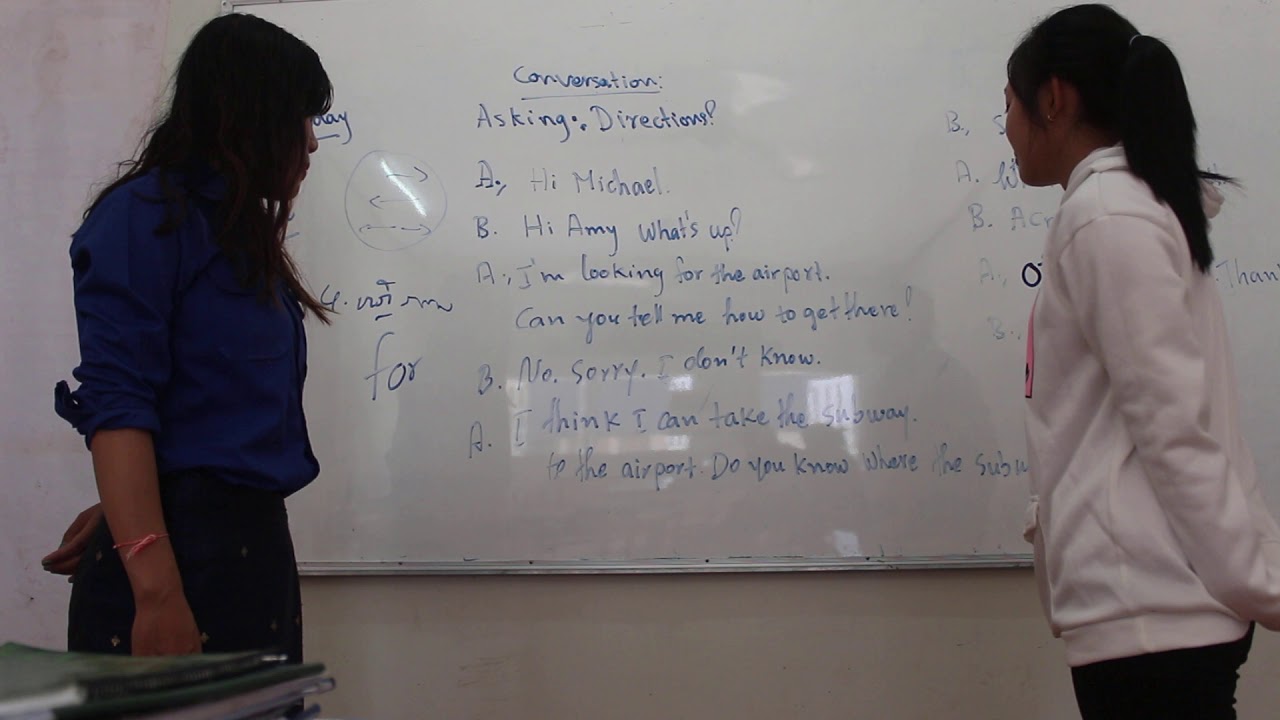 Conversation:
Asking: Directions?
A., Hi Michael.
B. Hi Amy What's up?
A., I'm looking for the airport.
Can you tell me how to get there?
B. No. Sorry. I don't know.
A. I think I can take the subway.
to the airport. Do you know where the
for
B.,
A.
B.
A.,
B.,